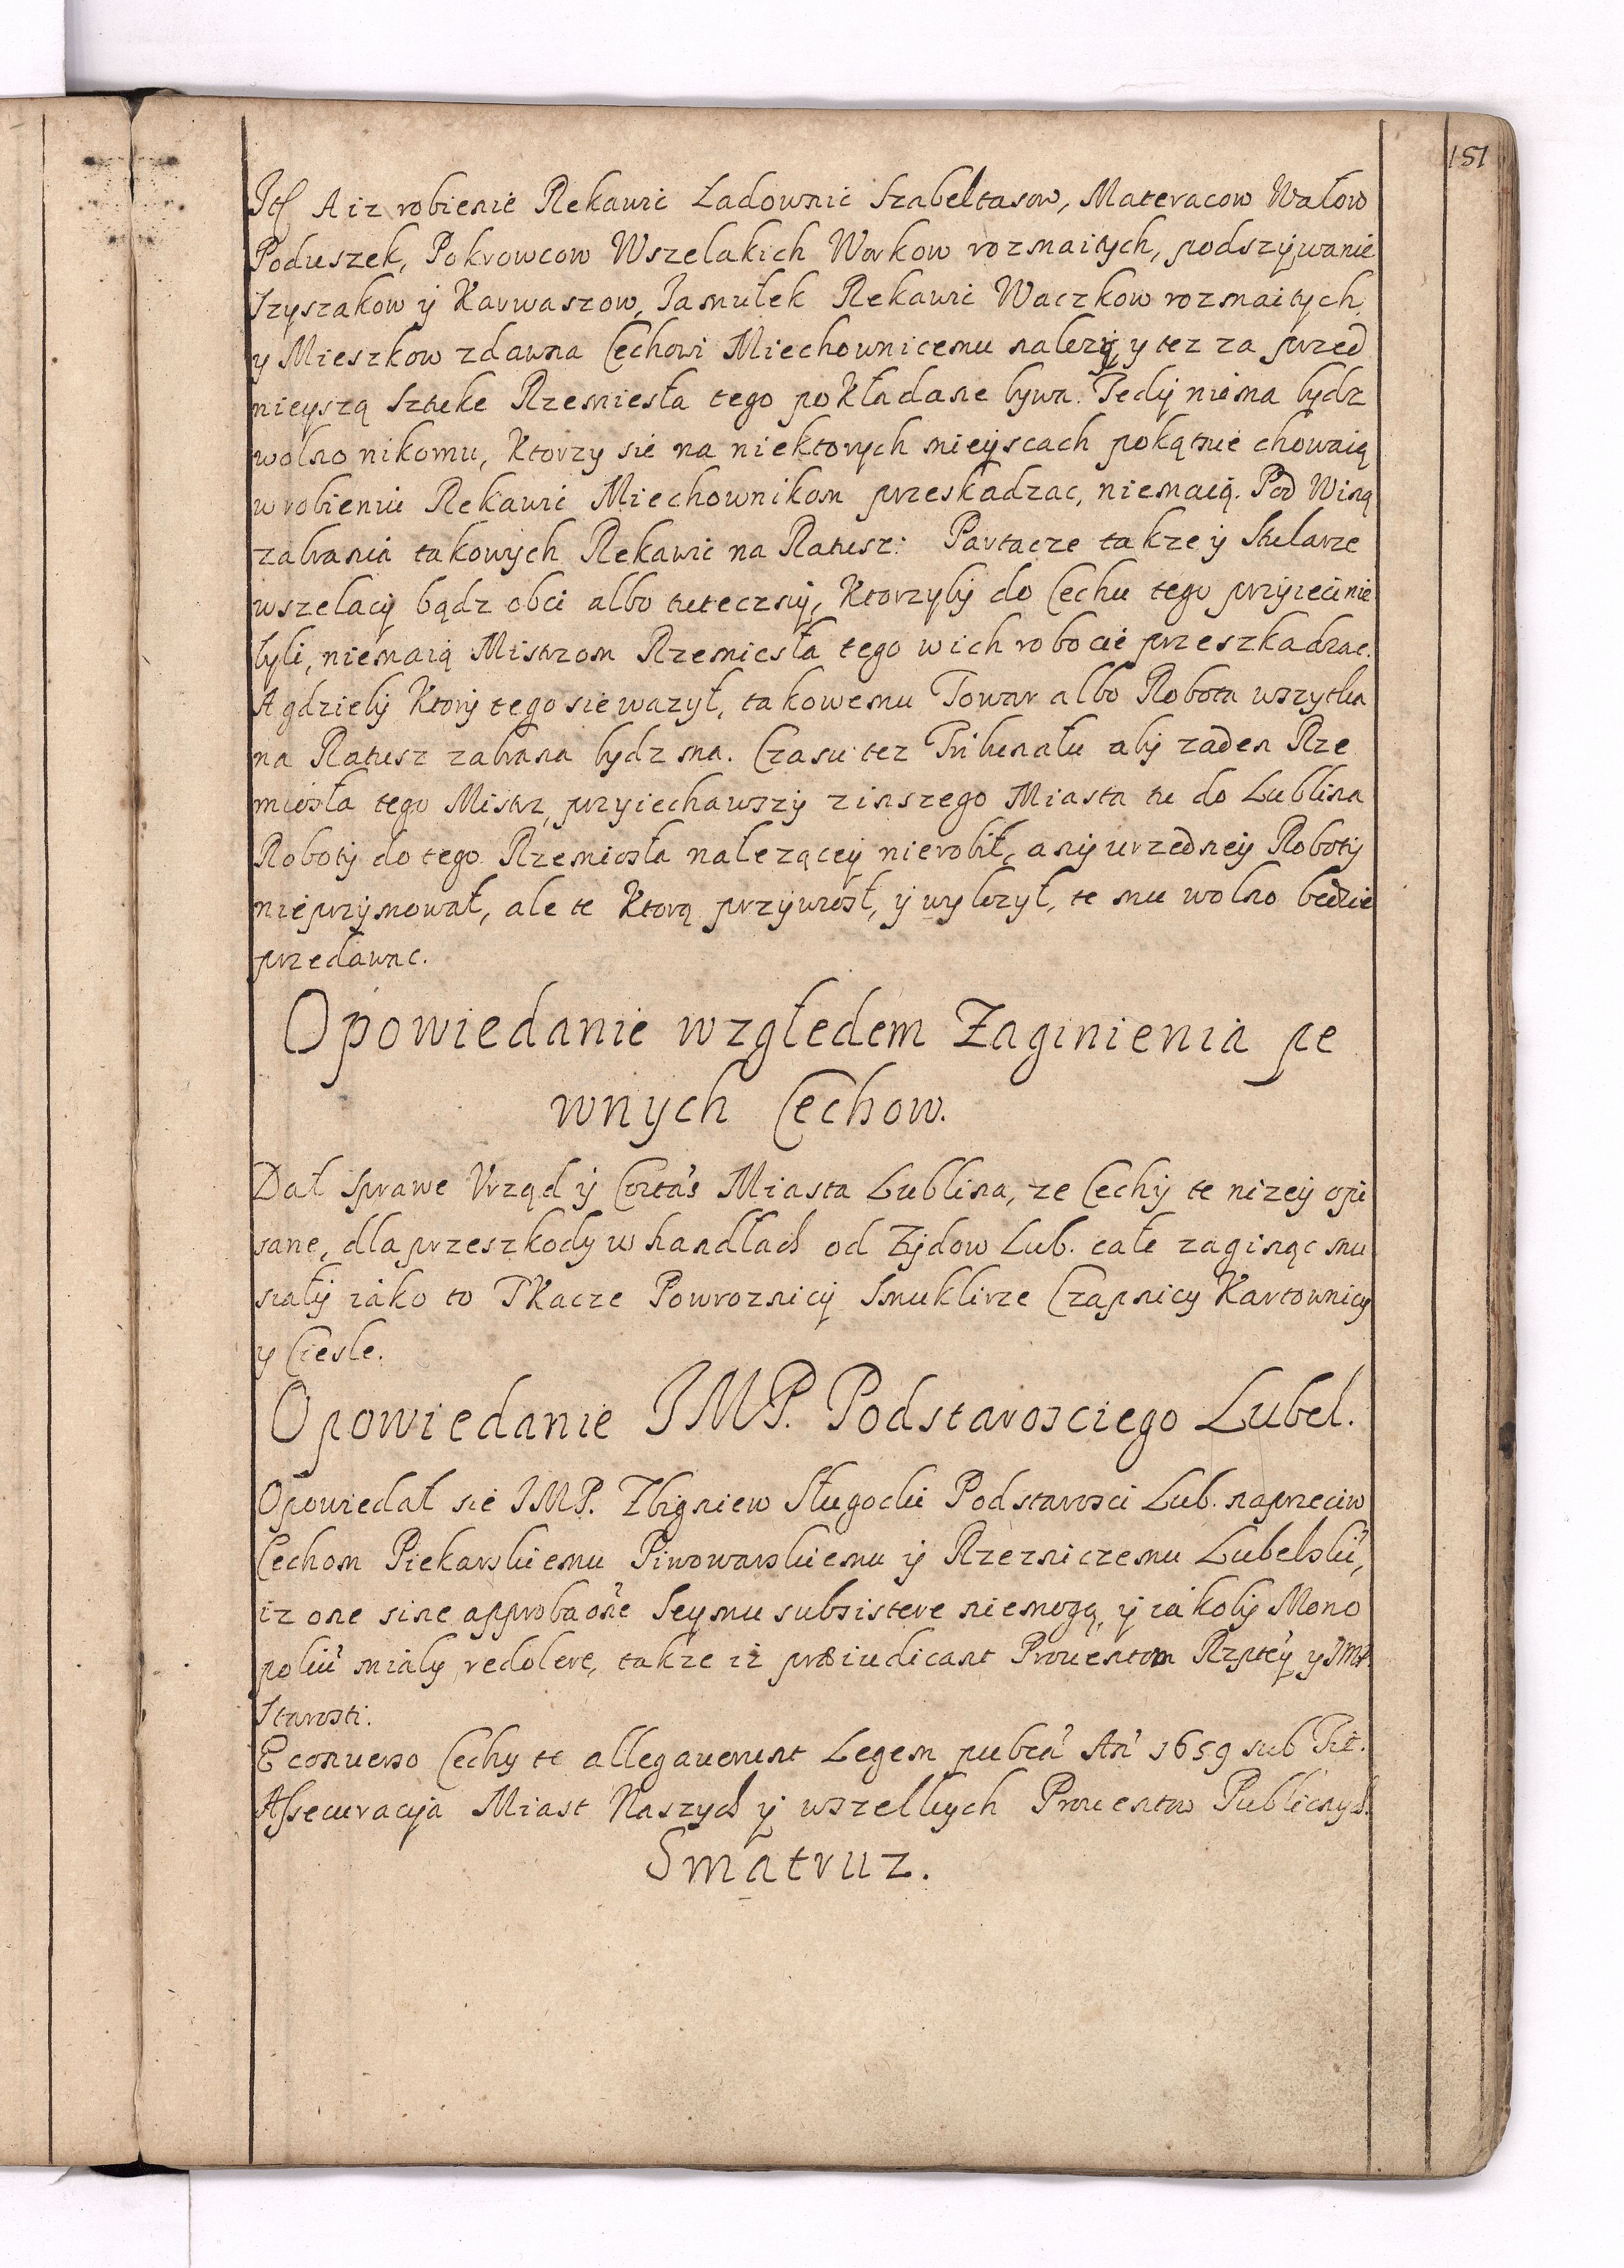 151
Itē A iz robienie Rekawic Ładownic Szabeltasow, Materacow Wałow
Poduszek, Pokrowcow Wszelakich Workow rozmaitych, podszywanie
Szyszakow ÿ Karwaszow, Jamułek Rekawic Waczkow rozmaitych
y Mieszkow zdawna Cechowi Miechownicemu nalezy, y tez za przed
nieyszą Sztuke Rzemiesła tego pokładane bywa. Tedÿ niema bydz
wolno nikomu, Ktorzy sie na niektorych mieyscach pokątnie chowaią
w robieniu Rekawic Miechownikom przeskadzac, niemaią. Pod Winą
zabrania takowych Rekawic na Ratusz: Partacze takze ÿ Stularze
wszelacÿ bądz obci albo tuteczniÿ, Ktorzybÿ do Cechu tego przÿieci nie
byli, niemaią Mistrzom Rzemiesła tego w ich robocie przeszkadzac.
A gdziebÿ Ktorÿ tego sie wazył, takowemu Towar albo Robota wszytka
na Ratusz zabrana bydz ma. Czasu tez Tribunału abÿ zaden Rze
miosła tego Mistrz, przyiechawszÿ zinszego Miasta tu do Lublina
Robotÿ do tego Rzemiosła nalezącey nierobił, anÿ urzedneÿ Robotÿ
nie przÿmował, ale te Ktorą przÿwiosł, ÿ wylozył, te mu wolno bedzie
przedawac.
Opowiedanie względem Zaginienia pe
wnych Cechow.
Dał Sprawe Vrząd ÿ Coetus Miasta Lublina, ze Cechÿ te nizeÿ opi
sane, dla przeszkody w handlach od Zÿdow Lub. całe zaginąc mu
siałÿ iáko to Tkacze Powroznicÿ Smuklirze Czapnicy Kartownicy
y Ciesle.
Opowiedanie JMP. Podstarosciego Lubel.
Opowiedał sie JMP. Zbigniew Sługocki Podstarosci Lub. naprzeciw
Cechom Piekarskiemu Piwowarskiemu ÿ Rzezniczemu Lubelskiḿ,
iz one sine approbaōne Seymu subsistere niemogą, ÿ iákobÿ Mono
poliū miały redolere, takze iż præiudicant Prouentom Rzptey y JMP.
Starosti.
E conuerso Cechy te allegauerunt Legem pubcā An̄ 1659 sub Tit.
Assecuracyja Miast Naszych ÿ wszelkych Prouentow Publicnych.
Smatruz.